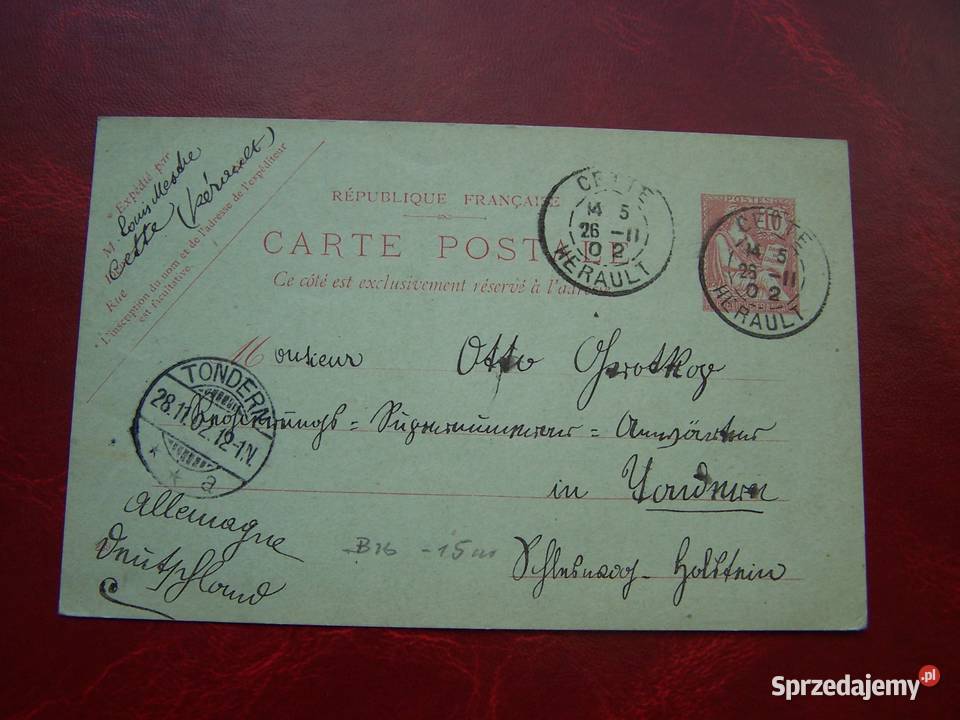 * Expédié par
M. Louis Mesdre
Cette (Hérault)
Rue
* L'inscription du nom et de l'adresse de l'expéditeur
est facultative.
RÉPUBLIQUE FRANÇAISE
CARTE POSTALE
Ce côté est exclusivement réservé à l'adresse
CETTE
14 5
26 -11
02
HÉRAULT
POSTES
10
CETTE
14 5
26 -11
02
HÉRAULT
Monsieur Otto
Supernumerar = Anwärter
in Tondern
Schleswig-Holstein
TONDERN
28.11.02.12-1N.
* * a
Allemagne
Deutschland
B26 -15
Sprzedajemy.pl